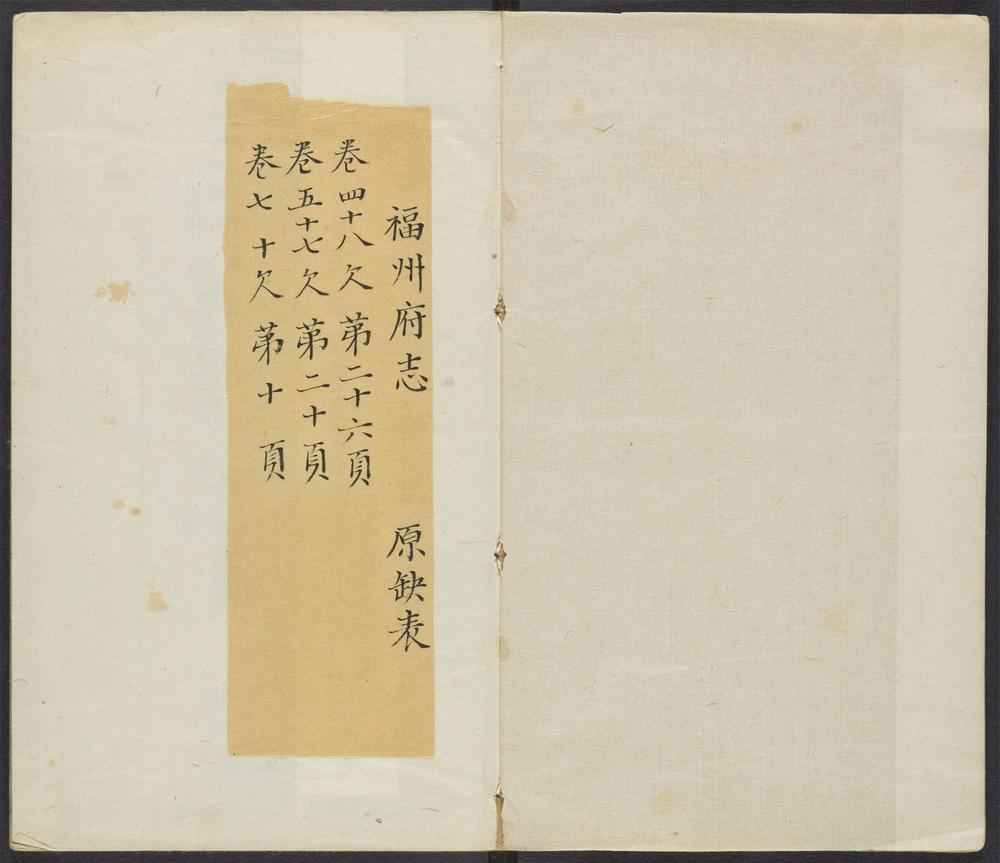 福州府志 原缺表
卷四十八欠第二十六頁
卷五十七欠第二十頁
卷七十欠第十頁